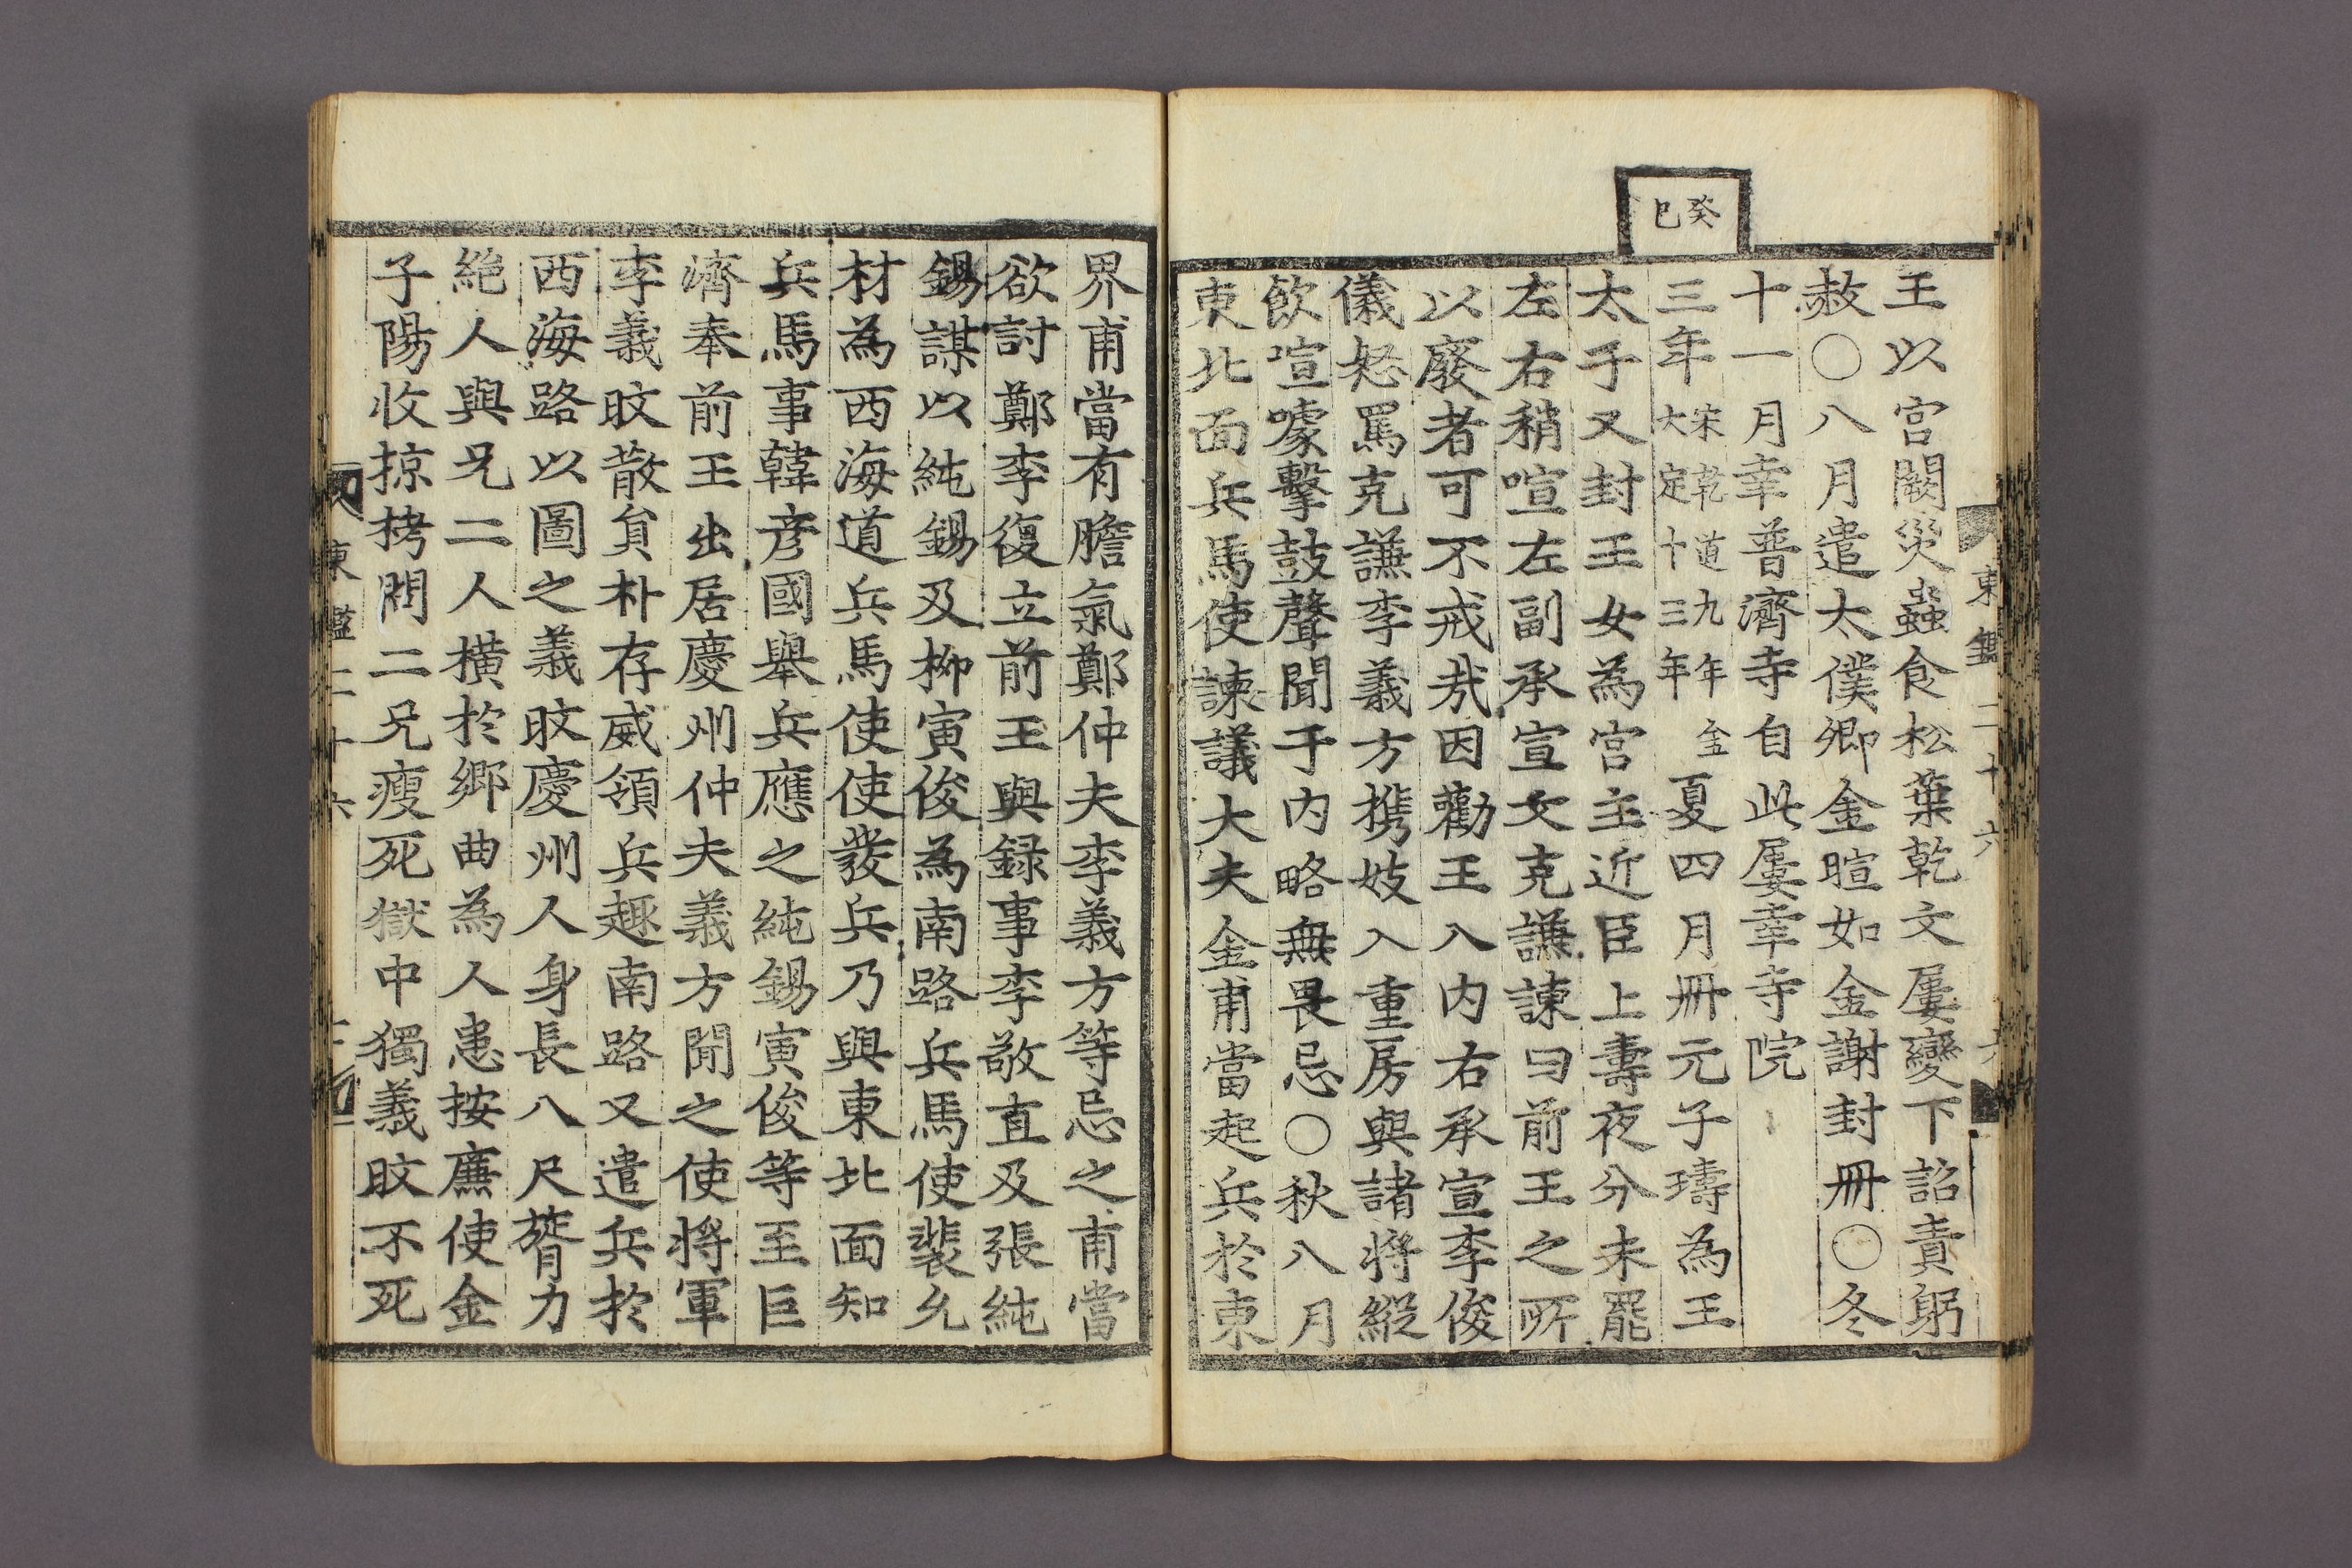 癸巳
王以宮闕災蟲食松葉乾文屢變下詔責躬
赦○八月遣太僕卿金暄如金謝封冊○冬
十一月幸普濟寺自此屢幸寺院
三年宋乾道九年金大定十三年夏四月冊元子璹為王
太子又封王女為宮主近臣上壽夜分未罷
左右稍喧左副承宣文克謙諫曰前王之所
以廢者可不戒㦲因勸王入內右承宣李俊
儀怒罵克謙李義方携妓入重房與諸將縱
飮喧噱擊鼓聲聞于內略無畏忌○秋八月
東北面兵馬使諫議大夫金甫當起兵於東
東鑑二十六
界甫當有膽氣鄭仲夫李義方等忌之甫當
欲討鄭李復立前王與録事李敬直及張純
錫謀以純錫及柳寅俊為南路兵馬使裴允
材為西海道兵馬使使發兵乃與東北面知
兵馬事韓彦國舉兵應之純錫寅俊等至巨
濟奉前王出居慶州仲夫義方聞之使將軍
李義旼散負朴存威領兵趣南路又遣兵於
西海路以圖之義旼慶州人身長八尺膂力
絶人與兄二人橫於鄉曲為人患按廉使金
子陽收掠栲問二兄瘦死獄中獨義旼不死
東鑑二十六